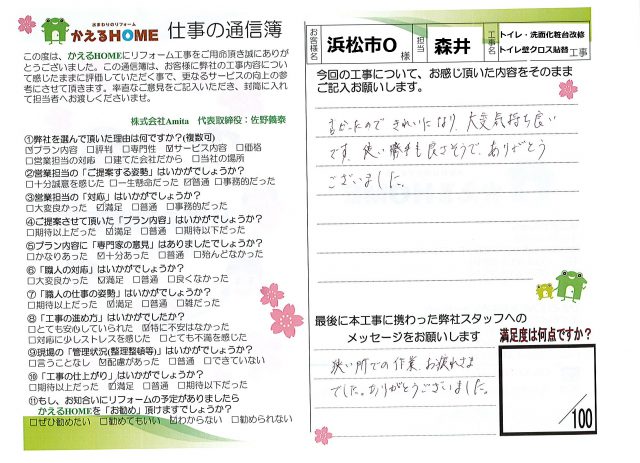 水まわりのリフォーム
かえるHOME 仕事の通信簿
この度は、かえるHOMEにリフォーム工事をご用命頂き誠にありがとうございました。この通信簿は、お客様に弊社の工事内容について感じたままに評価していただく事で、更なるサービスの向上の参考にさせて頂きます。率直なご意見をご記入いただき、封筒に入れて担当者へお渡しくださいませ。
株式会社Amita 代表取締役：佐野義泰
①弊社を選んで頂いた理由は何ですか?(複数可)
☑プラン内容 □評判 □専門性 ☑サービス内容 □価格
□営業担当の対応 □建てた会社だから □当社の場所
②営業担当の「ご提案する姿勢」はいかがでしょうか?
□十分誠意を感じた □一生懸命だった ☑普通 □事務的だった
③営業担当の「対応」はいかがでしょうか?
□大変良かった ☑満足 □普通 □事務的だった
④ご提案させて頂いた「プラン内容」はいかがでしょうか?
□期待以上だった ☑満足 □普通 □期待以下だった
⑤プラン内容に「専門家の意見」はありましたでしょうか?
□かなりあった ☑十分あった □普通 □殆んどなかった
⑥「職人の対応」はいかがでしょうか?
□大変良かった ☑満足 □普通 □良くなかった
⑦「職人の仕事の姿勢」はいかがでしょうか?
□期待以上だった ☑満足 □普通 □雑だった
⑧「工事の進め方」はいかがでしたか?
□とても安心していられた ☑特に不安はなかった
□対応に少しストレスを感じた □とても不満を感じた
⑨現場の「管理状況(整理整頓等)」はいかがでしょうか?
□言うことなし ☑配慮があった □普通 □できていない
⑩「工事の仕上がり」はいかがでしょうか?
□期待以上だった ☑満足 □普通 □期待以下だった
⑪もし、お知合いにリフォームの予定がありましたら
かえるHOMEを「お勧め」頂けますでしょうか?
□ぜひ勧めたい □勧めてもいい ☑わからない □勧められない
お客様名 浜松市O 様 担当 森井 工事名 トイレ・洗面化粧台改修
トイレ壁クロス貼替 工事
今回の工事について、お感じ頂いた内容をそのまま
ご記入お願いします。
きれいになり、大変気持ち良い
です。使い勝手も良さそうで、ありがとう
ございました。
最後に本工事に携わった弊社スタッフへの
メッセージをお願いします
狭い所での作業、お疲れさま
でした。ありがとうございました。
満足度は何点ですか?
/100